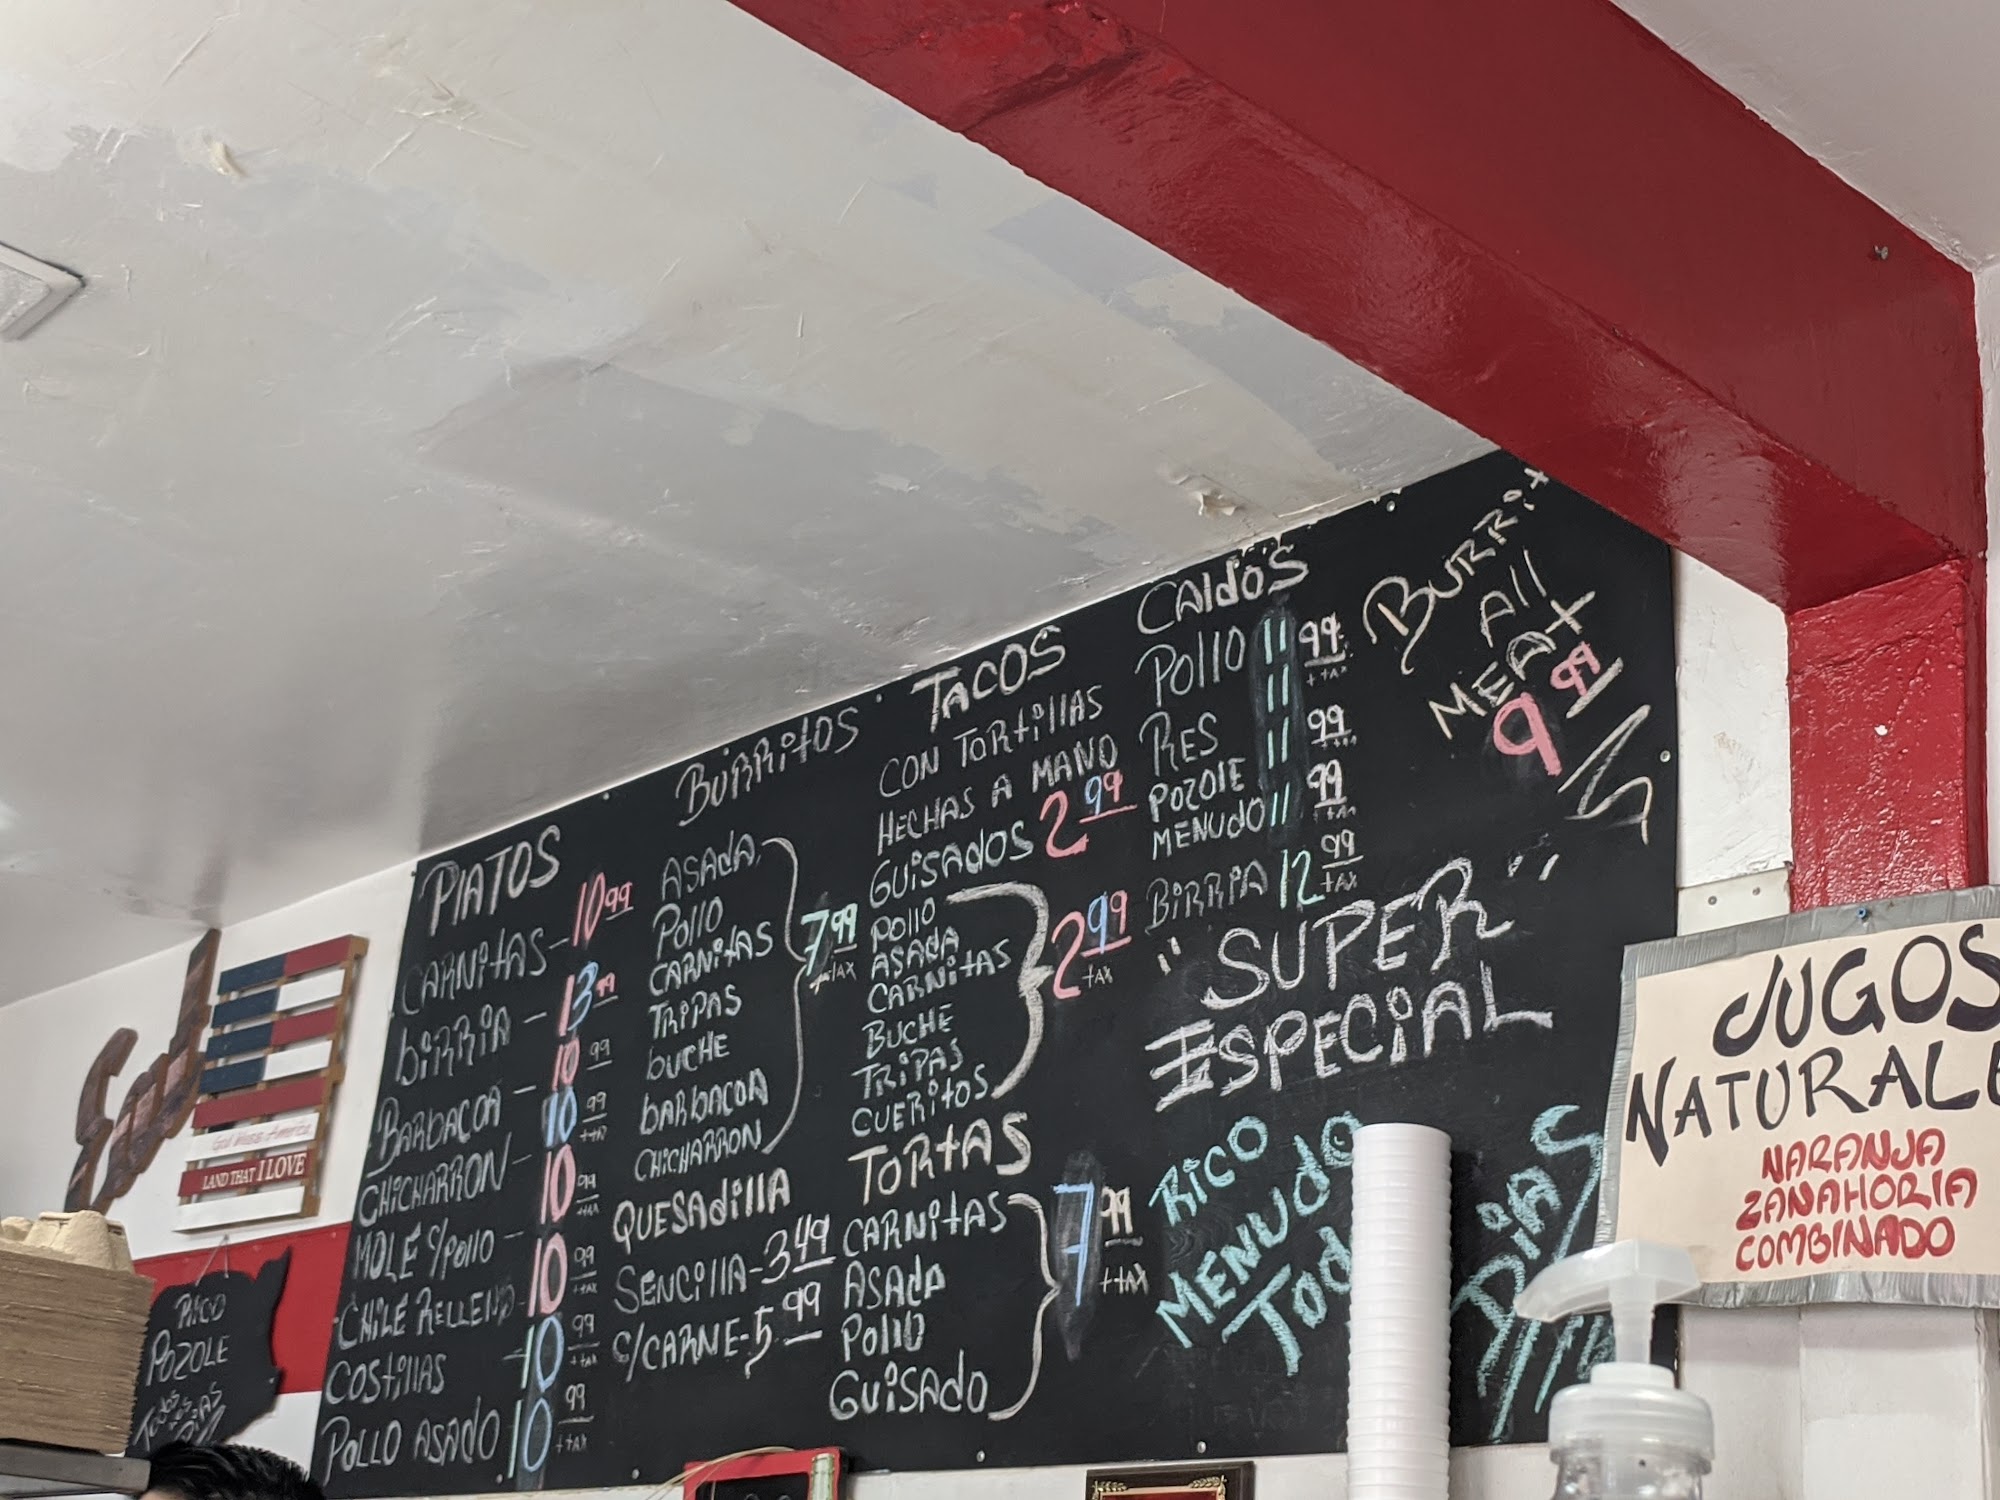 PlATOS
CARNitAS - 10 99
biRRiA - 13 99
BARbACOA - 10 99
CHiCHARRON - 10 99 +tax
MOLE c/pollo - 10 99 +tax
CHiLE RELLENO - 10 99 +tax
COStillAS 10 99 +tax
POLLO ASADO 10 99 +tax
BURRitOS
ASADA
POllO
CARNitAS
TRiPAS
buCHE
bARbACOA
CHiCHARRON
7 99 +tAX
QUESAdillA
SENCillA - 3 49
c/CARNE - 5 99
TACOS
CON TORtillAS
HECHAS A MANO
GUiSAdOS 2 99
POllO
ASADA
CARNitAS
BUCHE
TRiPAS
CUERitOS
2 99 +tAX
TORtAS
CARNitAS
ASADA
POllO
GUiSAdO
7 99 +tAX
CAldOS
POllO 11 99 +tAX
RES 11 99
POZOlE 11 99
MENUdO 11 99
BiRRiA 12 99 +tAX
BURRit
All
MEAt
9 99
"SUPER"
ESPECiAL
RiCO
MENUdO
Tod
DiAS
JUGOS
NATURALE
NARANJA
ZANAHORIA
COMBINADO
God Bless America
LAND THAT I LOVE
RiCO
POZOLE
TODOS
LOS
DiAS